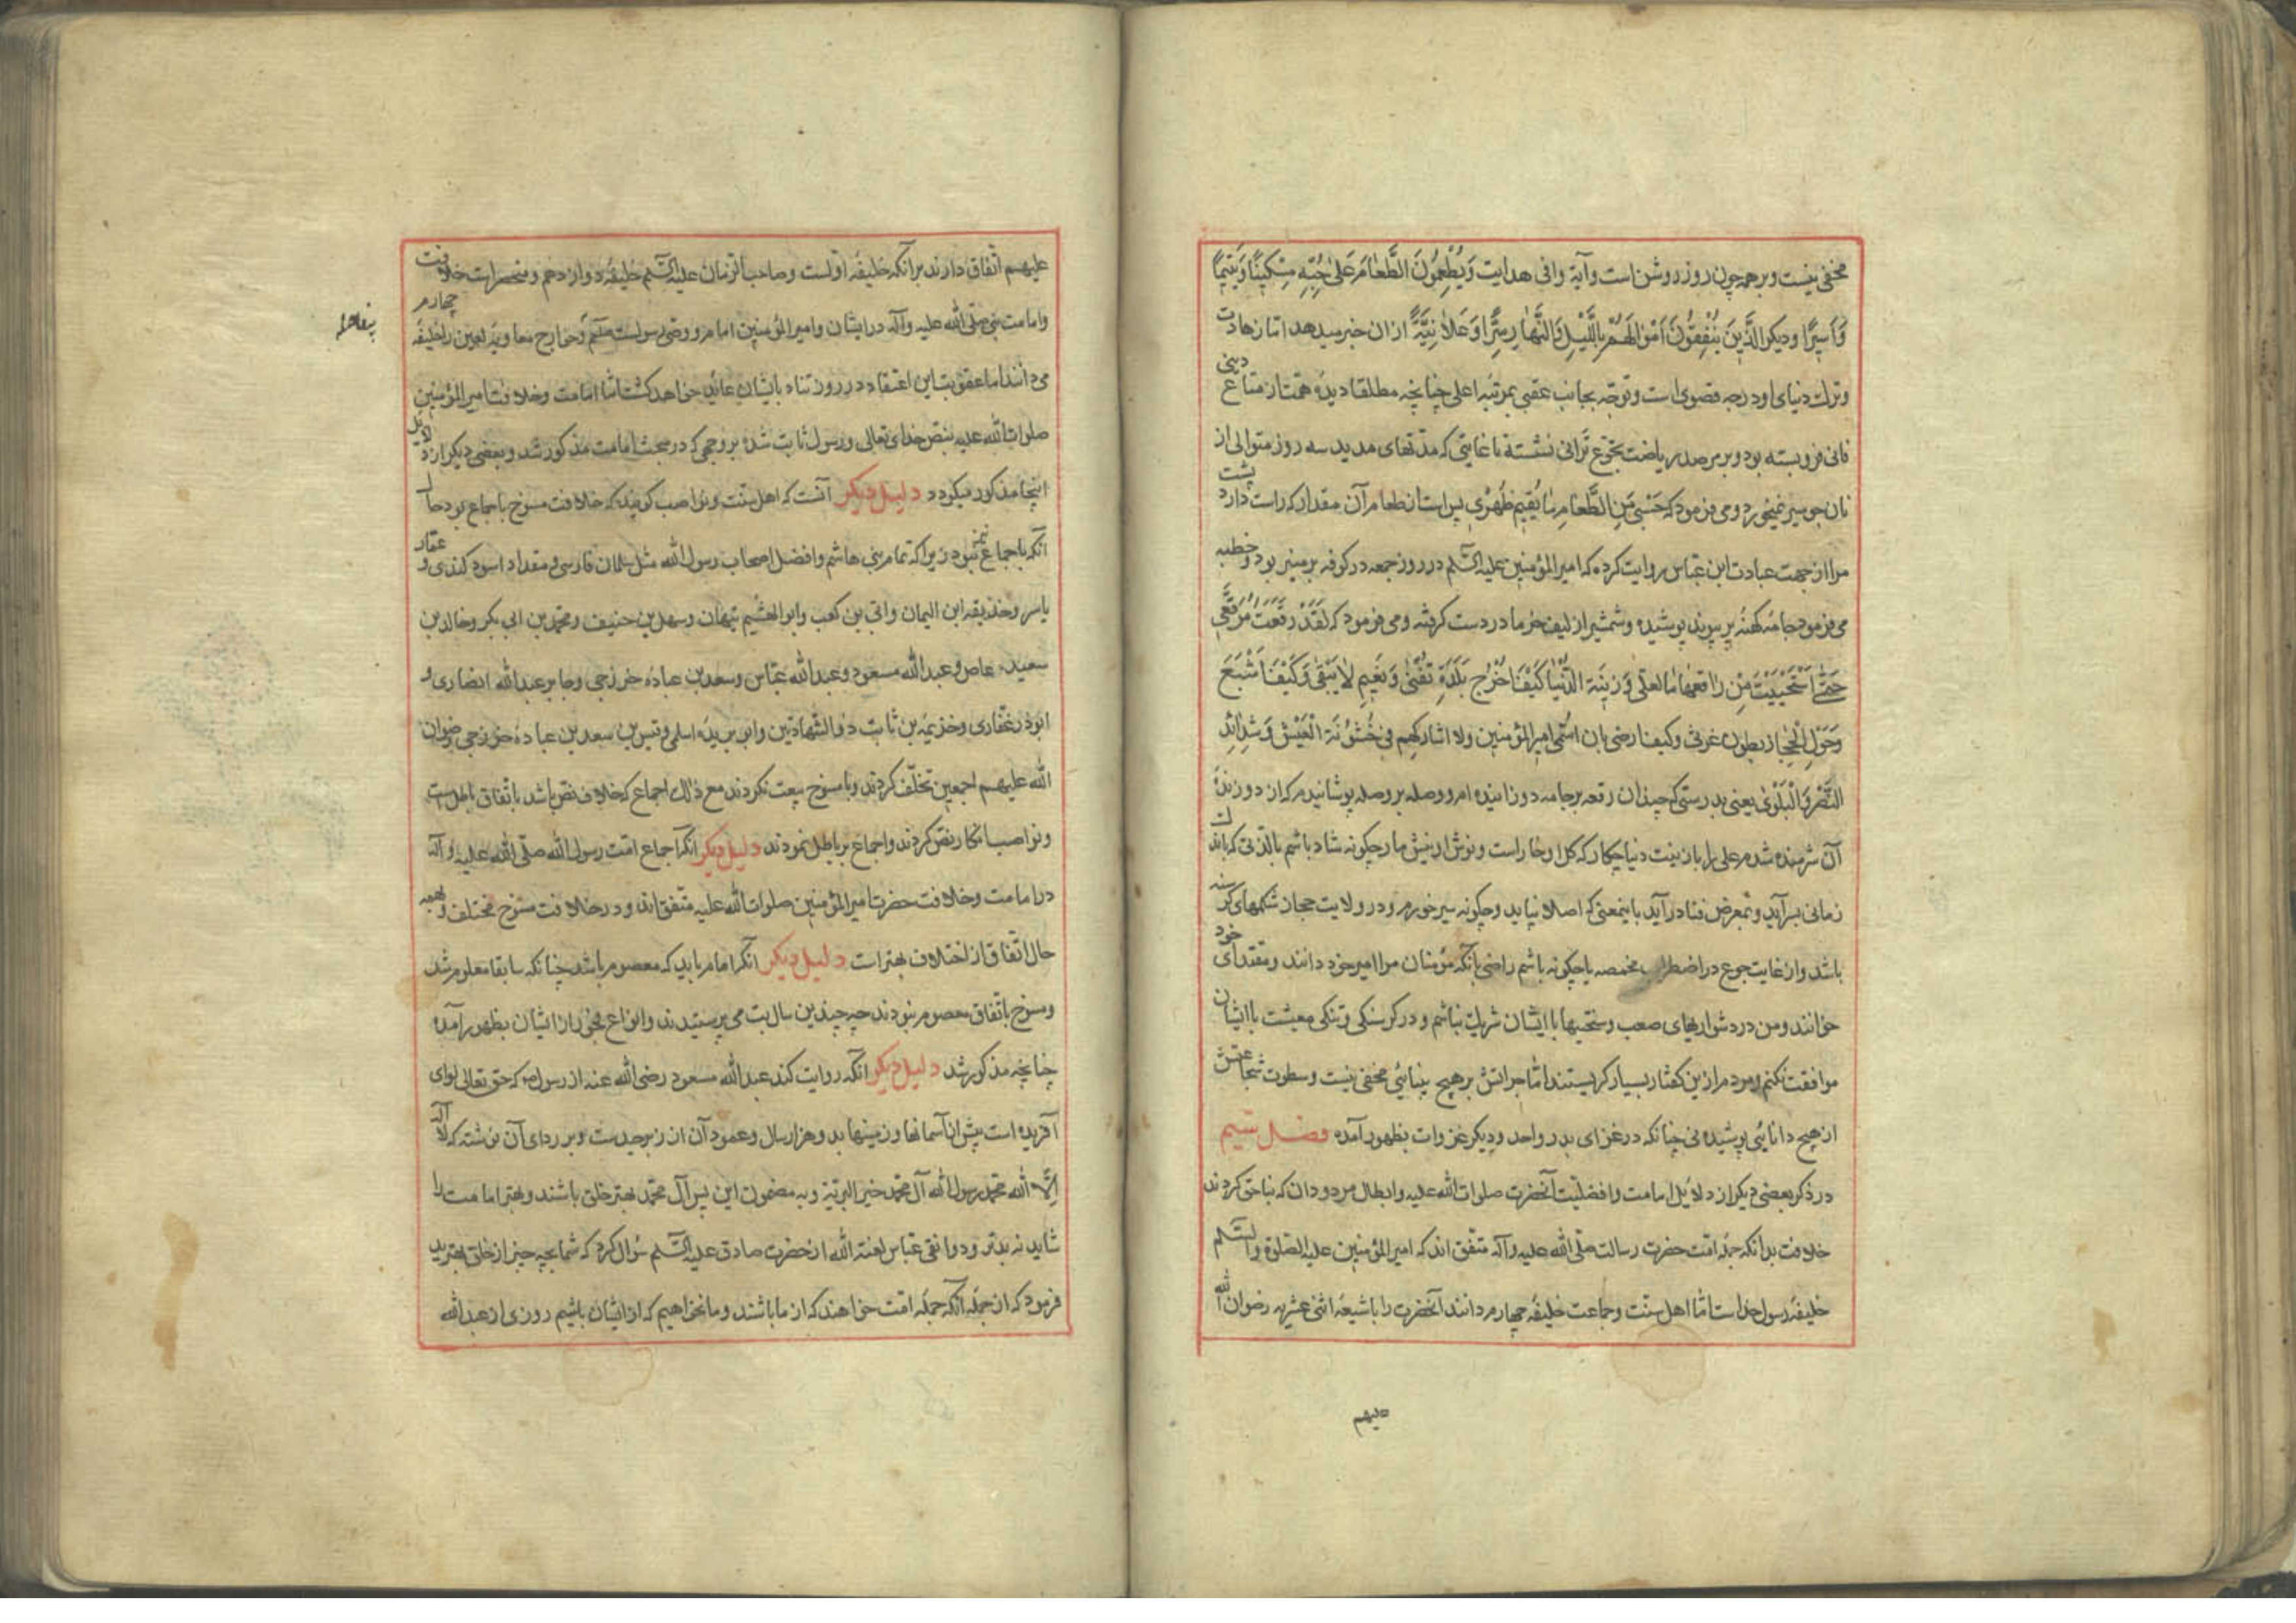 مخفی نیست و بر همه چون روز روشن است و آیهٔ وافی هدایت وَیُطْعِمُونَ الطَّعٰامَ عَلیٰ حُبِّهِ مِسْکِینًا وَیَتِیمًا
وَاَسِیرًا و دیگر الَّذِینَ یُنْفِقُونَ اَمْوٰالَهُمْ بِاللَّیْلِ وَالنَّهٰارِ سِرًّا وَعَلٰانِیَةً ازان خبر میدهد اما زهادت
و ترک دنیای او در جه قصوی است و توجه بجانب عقبی بمرتبهٔ اعلی چنانچه مطلقا دیدهٔ همت از متاع دنیی
فانی فرو بسته بود و بر مرصد ریاضت نشسته تا غایتی که مدتهای مدید سه روز متوالی از
نان جو سیر نمیخورد و می فرمود که حَسْبی مِنَ الطَّعٰامِ مٰا یُقِیمُ ظَهْرِی بس است از طعام آن مقدار که راست دارد پشت
مرا از جهت عبادت ابن عباس روایت کرده که امیر المؤمنین علیه السّلم در روز جمعه در کوفه بر منبر بود و خطبه
می فرمود جامهٔ کهنهٔ پر پیوند پوشیده و شمشیر از لیف خرما در دست گرفته و می فرمود که لَقَدْ رَقَّعْتُ مُرَقَّعِی
حَتّٰی اسْتَحْیَیْتُ مِنْ رٰاقِعِهٰا مٰا لعلی وَزِینَة الدُّنْیٰا کَیْفَ اَفْرُح بِلَذَّةٍ تَفْنیٰ وَنَعِیمٍ لٰا یَبْقیٰ وَکَیْفَ اَشْبَعُ
وَحَوْلَ الْحِجٰازِ بطون غرثی و کیف ارضی بان اسمّی امیر المؤمنین ولا اشارکهم فِی خُشُوْنَةِ الْعَیْشِ وَشَدٰائِدِ
الضُّرِّ وَالْبَلْویٰ یعنی بدرستی که چندان رقعه بر جامه دوزانیده ام و وصله بر وصله پوشانیدم که از دوزندهٔ
آن شرمنده شدم علی را با زینت دنیا چکار که گل او خار است و نوش او نیش مار چگونه شاد باشم بلذتی که باندک
زمانی بسر آید و بمعرض فنا در آید بانیمعنی که اصلا نیاید و چگونه سیر خورم و در ولایت حجاز شکمهای گرسنه
باشد و از غایت جوع در اضطراب مخمصه یا چگونه باشم راضی بآنکه مؤمنان مرا امیر خود دانند و مقتدای خود
خوانند و من در دشواریهای صعب و سختیها با ایشان شریک نباشم و در گرسنگی و تنگی معیشت با ایشان
موافقت نکنم و مردم از این گفتار بسیار گریستند اما جراتش بر هیچ بینائی مخفی نیست و سطوت شجاعتش
از هیچ دانایی پوشیده نی چنانکه در غزای بدر و احد و دیگر غزوات بظهور آمده فصل سیم
در ذکر بعضی دیگر از دلایل امامت و افضلیت آنحضرت صلوات الله علیه و ابطال مردودان که بناحق کردند
خلافت بدانکه جمله امت حضرت رسالت صلّی الله علیه و آله متفق اند که امیر المؤمنین علیه الصلوة والسّلم
خلیفهٔ رسول خداست امّا اهل سنت و جماعت خلیفهٔ چهارم دانند آنحضرت را با شیعهٔ اثنی عشریه رضوان الله
علیهم
علیهم اتفاق دارند بر آنکه خلیفهٔ اولست و صاحب الزمان علیه السّلم خلیفهٔ دوازدهم و منحصر است خلافت
و امامت نبی صلّی الله علیه وآله در ایشان و امیر المؤمنین امام و وصی رسولست و خوارج معاویهٔ لعین را خلیفهٔ چهارم
می دانند اما عقوبت این اعتقاد در روز تناد بایشان عاید خواهد گشت امّا امامت و خلافت امیر المؤمنین
صلوات الله علیه بنص خدای تعالی و رسول ثابت شده بر وجهی که در مبحث امامت مذکور شد و بعضی دیگر از دلایل
اینجا مذکور میگردد دلیل دیگر آنست که اهل سنت و نواصب گویند که خلافت منسوخ باجماع بود حال
آنکه باجماع نبود زیرا که تمام بنی هاشم و افضل اصحاب رسول الله مثل سلمان فارسی و مقداد اسود کندی و عمّار
یاسر و حذیفه ابن الیمان و ابی بن کعب و ابو الهشیم تیهان و سهل بن حنیف و محمد بن ابی بکر و خالد بن
سعید عاص و عبد الله مسعود و عبد الله عبّاس و سعد بن عبادهٔ خزرجی و جابر عبد الله انصاری و
ابوذر غفاری و خزیمهٔ بن ثابت ذو الشهادتین و ابو بریدهٔ اسلمی و قیس بن سعد بن عبادهٔ خزرجی رضوان
الله علیهم اجمعین تخلّف کردند و با منسوخ بیعت نکردند مع ذلک اجماع که خلاف نص باشد باتفاق باطل است
و نواصب انکار نص کردند و اجماع بر باطل نمودند دلیل دیگر آنکه اجماع امت رسول الله صلّی الله علیه و آله
در امامت و خلافت حضرت امیر المؤمنین صلوات الله علیه متفق اند و در خلافت منسوخ مختلف و بهمه
حال اتفاق از اختلاف بهتر است دلیل دیگر آنکه امام باید که معصوم باشد چنانکه سابقا معلوم شد
و منسوخ باتفاق معصوم نبودند چه چندین سال بت می پرستیدند و انواع فجور از ایشان بظهور آمده
چنانچه مذکور شد دلیل دیگر آنکه روایت کند عبد الله مسعود رضی الله عنه از رسول که حق تعالی لوای
آفریده است پیش از آسمانها و زمینها بدو هزار سال و عمود آن از زبرجدست و بر ردای آن نوشته که لا اله
الّا الله محمد رسول الله آل محمد خیر البریّة و به مضمون این پس آل محمد بهتر خلق باشند و بهتر امامت را
شاید نه بدتر و دوانقی عباس لعنة الله از حضرت صادق علیه السّلم سؤال کرد که شما بچه چیز از خلق بهترید
فرمود که از جمله آنکه جمله امت خواهند که از ما باشند و ما نخواهیم که از ایشان باشیم روزی از عبد الله